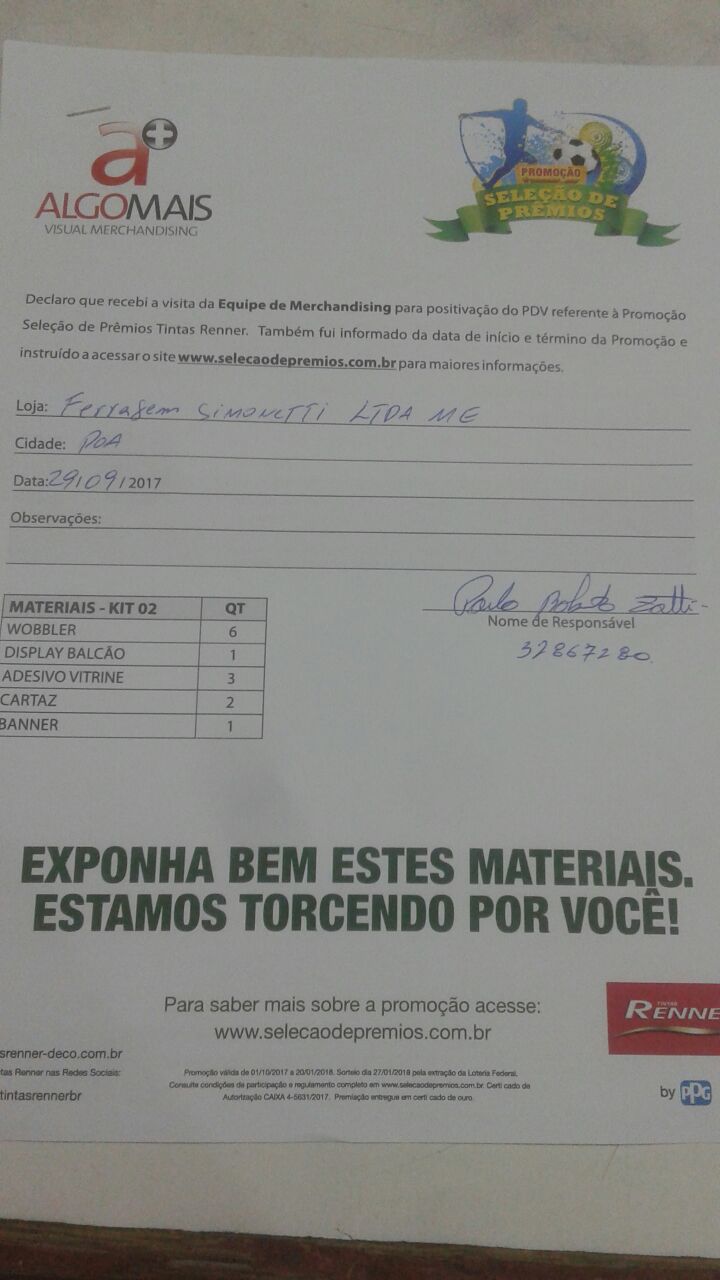 a+
ALGOMAIS
VISUAL MERCHANDISING
PROMOÇÃO
SELEÇÃO DE
PRÊMIOS
Declaro que recebi a visita da Equipe de Merchandising para positivação do PDV referente à Promoção
Seleção de Prêmios Tintas Renner. Também fui informado da data de início e término da Promoção e
instruído a acessar o site www.selecaodepremios.com.br para maiores informações.
Loja: Ferragem SIMONETTI LTDA ME
Cidade: POA
Data: 29/09/2017
Observações:
Paulo Roberto Zatti
Nome de Responsável
32867280
MATERIAIS - KIT 02 QT
WOBBLER 6
DISPLAY BALCÃO 1
ADESIVO VITRINE 3
CARTAZ 2
BANNER 1
EXPONHA BEM ESTES MATERIAIS.
ESTAMOS TORCENDO POR VOCÊ!
Para saber mais sobre a promoção acesse:
www.selecaodepremios.com.br
TINTAS
RENNE
srenner-deco.com.br
tas Renner nas Redes Sociais:
tintasrennerbr
Promoção válida de 01/10/2017 a 20/01/2018. Sorteio dia 27/01/2018 pela extração da Loteria Federal.
Consulte condições de participação e regulamento completo em www.selecaodepremios.com.br. Certi cado de
Autorização CAIXA 4-5631/2017. Premiação entregue em certi cado de ouro.
by PPG